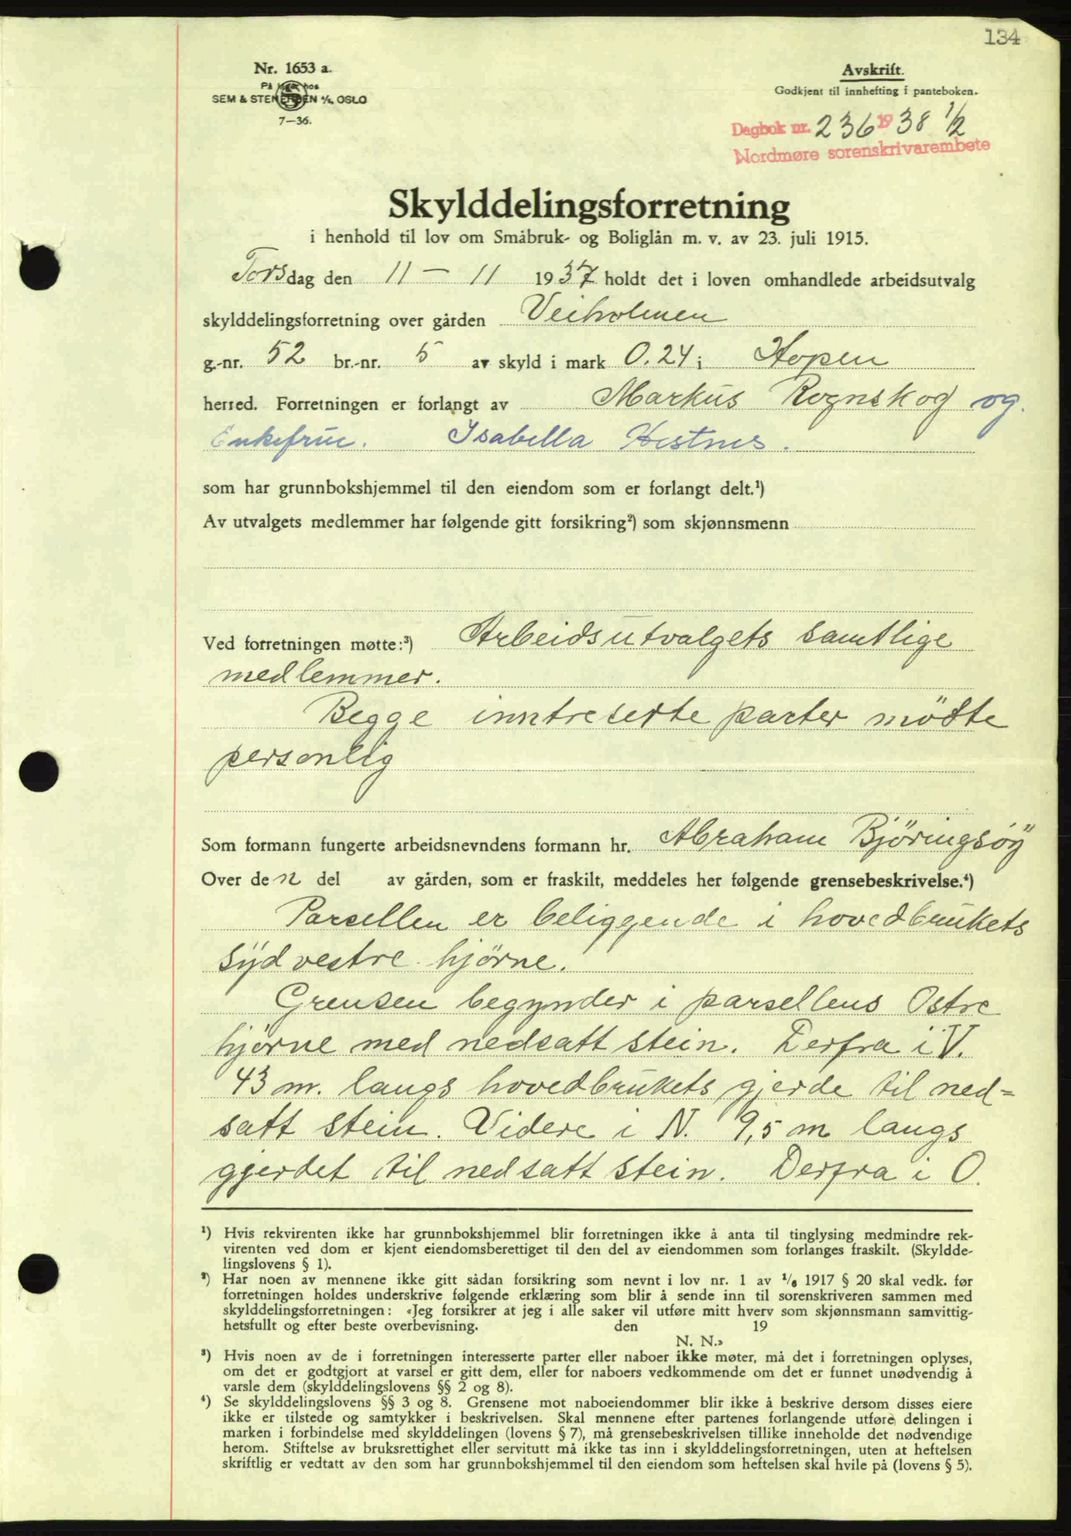 134
Nr. 1653 a.
På lager hos
SEM & STENERSEN A/S, OSLO
7—36.
Avskrift.
Godkjent til innhefting i panteboken.
Dagbok nr. 236 1938 1/2
Nordmøre sorenskrivarembete
Skylddelingsforretning
i henhold til lov om Småbruk- og Boliglån m. v. av 23. juli 1915.
Torsdag den 11 — 11 1937 holdt det i loven omhandlede arbeidsutvalg
skylddelingsforretning over gården Veiholmen
g.-nr. 52 br.-nr. 5 av skyld i mark 0.24 i Hopen
herred. Forretningen er forlangt av Markus Rognskog og.
Enkefrue. Isabella Hestnes.
som har grunnbokshjemmel til den eiendom som er forlangt delt.¹)
Av utvalgets medlemmer har følgende gitt forsikring²) som skjønnsmenn
Ved forretningen møtte:³) Arbeidsutvalgets samtlige
medlemmer.
Begge inntreserte parter mödte
personlig
Som formann fungerte arbeidsnevndens formann hr. Abraham Björingsöy
Over den del av gården, som er fraskilt, meddeles her følgende grensebeskrivelse.⁴)
Parsellen er beliggende i hovedbrukets
sydvestre hjørne.
Grensen begynder i parsellens Ostre
hjørne med nedsatt stein. Derfra i V.
43 m. langs hovedbrukets gjerde til ned=
satt stein. Videre i N. 9,5 m langs
gjerdet til nedsatt stein. Derfra i O.
¹) Hvis rekvirenten ikke har grunnbokshjemmel blir forretningen ikke å anta til tinglysing medmindre rek-
virenten ved dom er kjent eiendomsberettiget til den del av eiendommen som forlanges fraskilt. (Skyldde-
lingslovens § 1).
²) Har noen av mennene ikke gitt sådan forsikring som nevnt i lov nr. 1 av 1/6 1917 § 20 skal vedk. før
forretningen holdes underskrive følgende erklæring som blir å sende inn til sorenskriveren sammen med
skylddelingsforretningen: «Jeg forsikrer at jeg i alle saker vil utføre mitt hverv som skjønnsmann samvittig-
hetsfullt og efter beste overbevisning. den 19
N. N.»
³) Hvis noen av de i forretningen interesserte parter eller naboer ikke møter, må det i forretningen oplyses,
om det er godtgjort at varsel er gitt dem, eller for naboers vedkommende om det er funnet unødvendig å
varsle dem (skylddelingslovens §§ 2 og 8).
⁴) Se skylddelingslovens §§ 3 og 8. Grensene mot naboeiendommer blir ikke å beskrive dersom disses eiere
ikke er tilstede og samtykker i beskrivelsen. Skal mennene efter partenes forlangende utføre delingen i
marken i forbindelse med skylddelingen (lovens § 7), må grensebeskrivelsen tillike inneholde det nødvendige
herom. Stiftelse av bruksrettighet eller servitutt må ikke tas inn i skylddelingsforretningen, uten at heftelsen
skriftlig er vedtatt av den som har grunnbokshjemmel til den eiendom som heftelsen skal hvile på (lovens § 5).